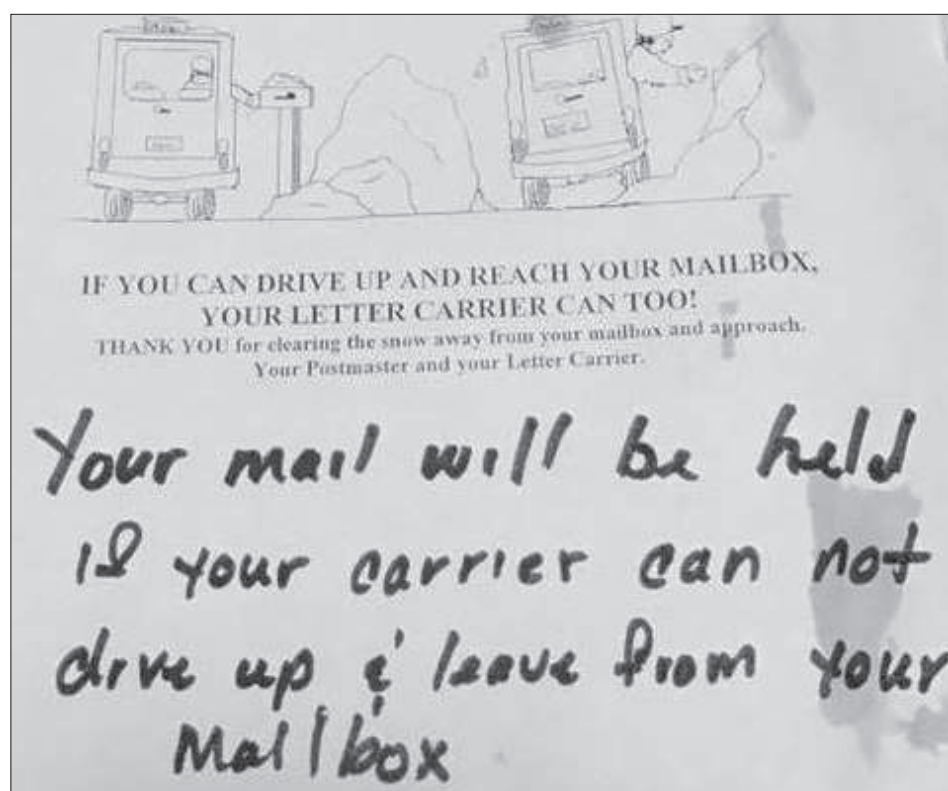 IF YOU CAN DRIVE UP AND REACH YOUR MAILBOX,
YOUR LETTER CARRIER CAN TOO!
THANK YOU for clearing the snow away from your mailbox and approach.
Your Postmaster and your Letter Carrier.
Your mail will be held
if your carrier can not
drive up & leave from your
Mailbox